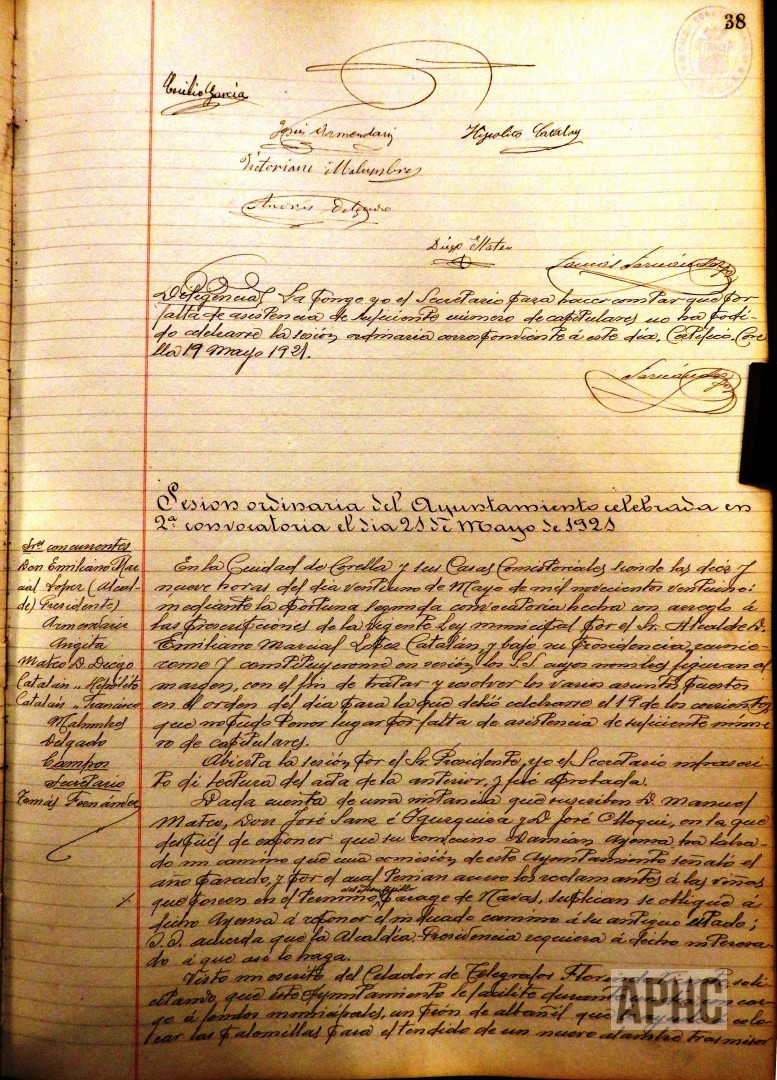 38
Emilio García
Jesús Armendariz Hipolito Catalan
Victoriano Malumbres
Andrés Delgado
Diego Mateo
Tomás Fernández
Diligencia. La pongo yo el Secretario para hacer constar que por
falta de asistencia de suficiente número de capitulares no ha podi-
do celebrarse la sesión ordinaria correspondiente á este día. Certifico. Core-
lla 19 Mayo 1921.
Fernández
Sesion ordinaria del Ayuntamiento celebrada en
2ª convocatoria el dia 21 de Mayo de 1921
Sres concurrentes
Don Emiliano Mar-
cial Lopez (Alcal-
de) Presidente)
Armendariz
Angita
Mateo D. Diego
Catalán " Hipólito
Catalán " Francisco
Malumbres
Delgado
Campos
Secretario
Tomás Fernández
En la Ciudad de Corella y sus Casas Consistoriales siendo las diez y
nueve horas del día veintiuno de Mayo de mil novecientos veintiuno:
mediante la oportuna segunda convocatoria hecha con arreglo á
las prescripciones de la vigente Ley municipal por el Sr. Alcalde D.
Emiliano Marcial López Catalán, y bajo su Presidencia, reunie-
ronse y constituyeronse en sesión los S.S. cuyos nombres figuran al
margen, con el fin de tratar y resolver los varios asuntos puestos
en el orden del día para la que debió celebrarse el 19 de los corrientes
que no pudo tener lugar por falta de asistencia de suficiente núme-
ro de capitulares.
Abierta la sesión por el Sr. Presidente, yo el Secretario infrascri-
to di lectura del acta de la anterior, y fué aprobada.
Dada cuenta de una instancia que suscriben D. Manuel
Mateo, Don José Sanz é Oquequiza y D. José Moqui, en la que
después de exponer que su convecino Damián Ayensa ha labra-
do un camino que una comisión de este Ayuntamiento señaló el
año pasado, y por el cual tenian acceso los reclamantes á las viñas
que poseen en el termino, parage de Navas, suplican se obligue á
dicho Ayensa á reponer el indicado camino á su antiguo estado;
S.S. acuerda que la Alcaldía-Presidencia requiera á dicho interesa-
do á que así lo haga.
Visto un escrito del Celador de Telegrafos soli-
citando, que este Ayuntamiento le facilite durante con car-
go á fondos municipales, un peón de albañil que colo-
car las palomillas para el tendido de un nuevo alambre trasmisor
APHC